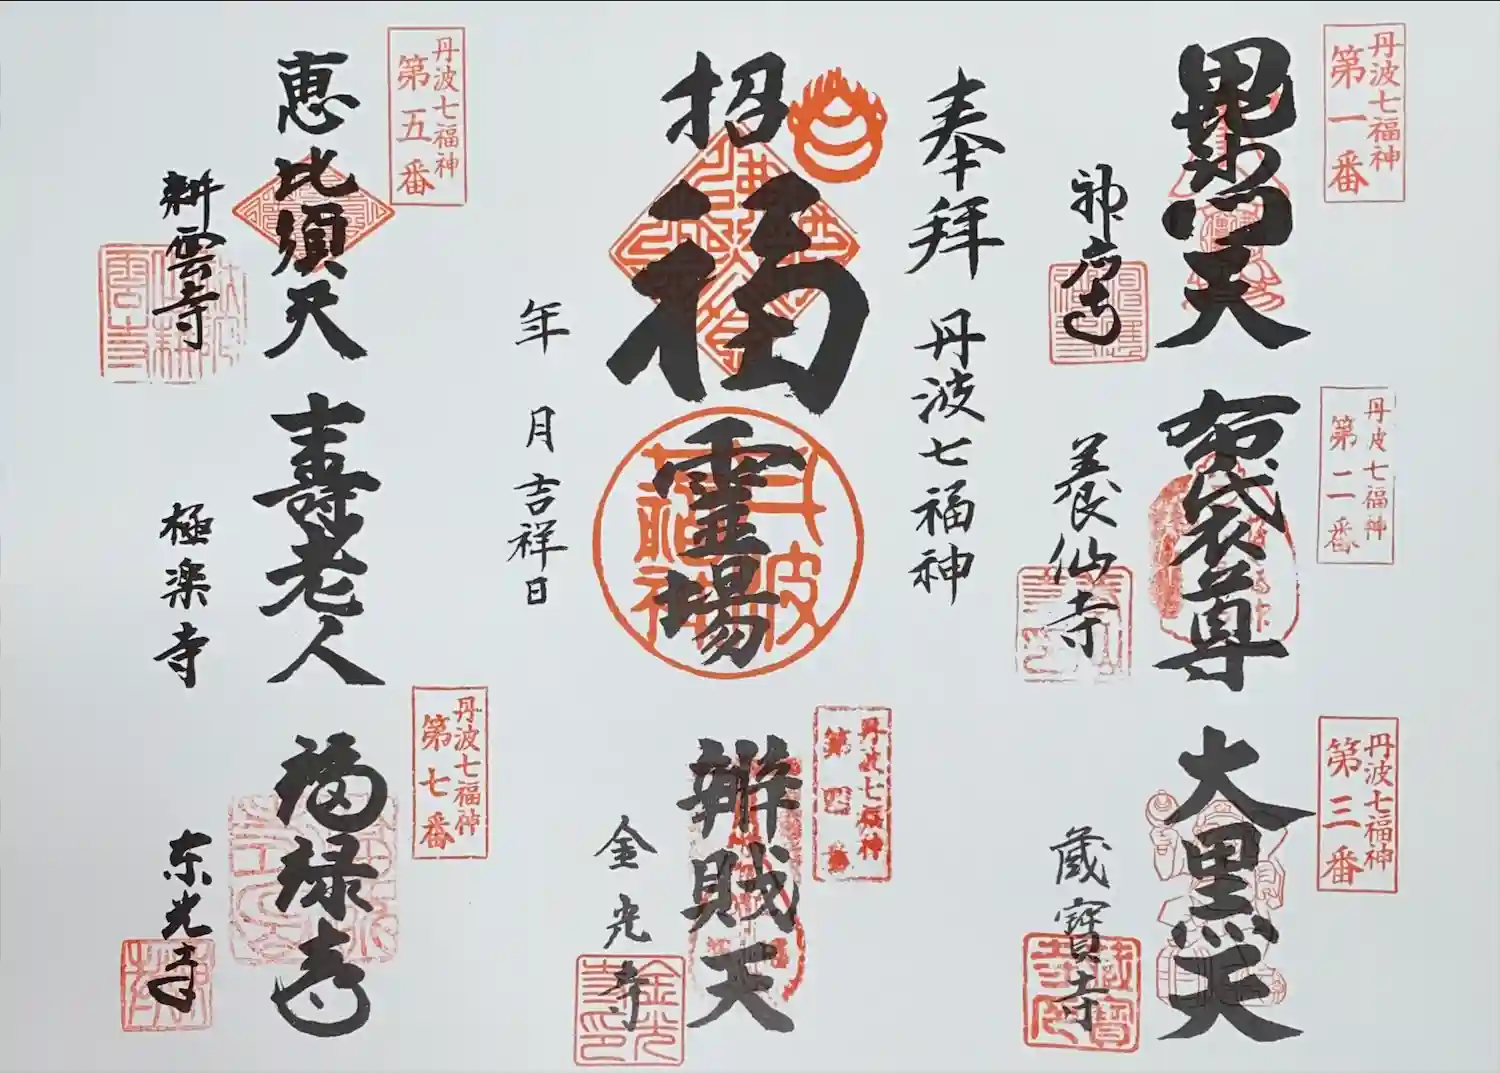 丹波七福神
第一番
毘沙門天
神応寺
丹波七福神
第二番
布袋尊
養仙寺
丹波七福神
第三番
大黒天
蔵寶寺
奉拝 丹波七福神
招福霊場
丹波七福神
年 月吉祥日
丹波七福神
第四番
辨財天
金光寺
丹波七福神
第五番
恵比須天
耕雲寺
寿老人
極楽寺
丹波七福神
第七番
福禄寿
东光寺